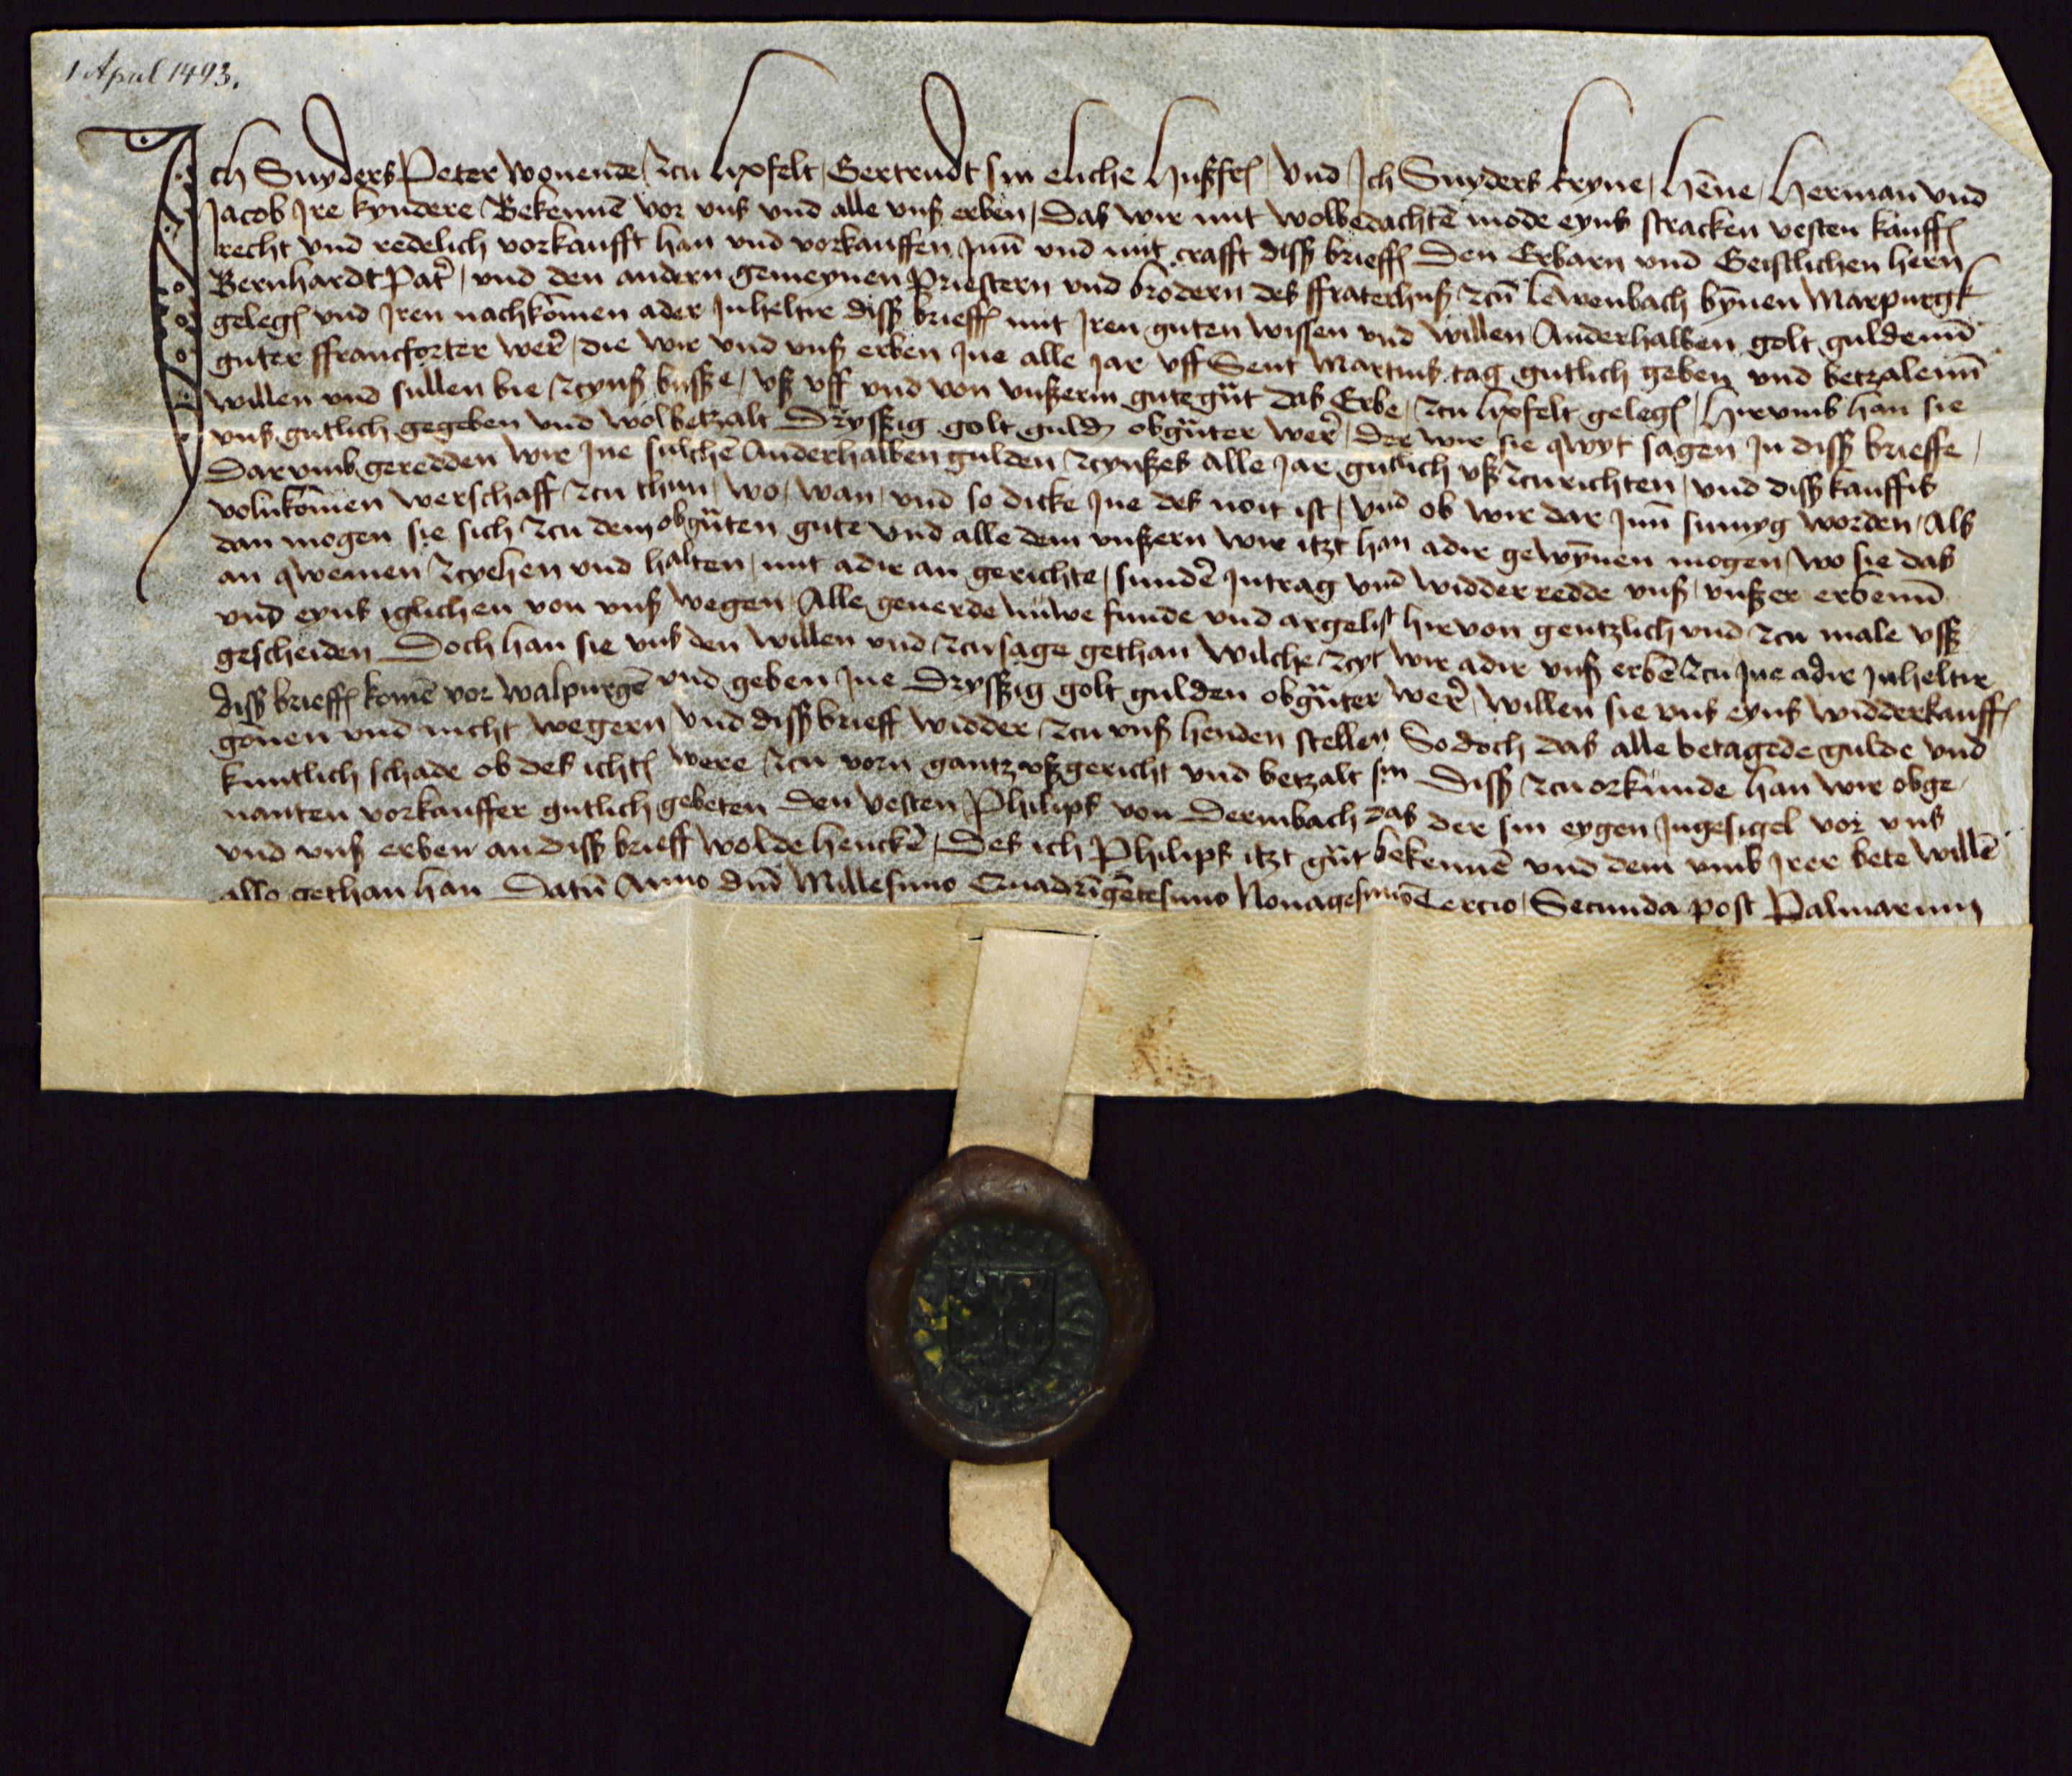 1 April 1493.
Ich Snyders Peter wonende zcu lixfelt, Gertrudt sin eliche hußfr, und Ich Snyders kryne, hēne, herman und
Jacob Jre kyndere Bekennē vor unß und alle unß erben, Das wir mit wolbedachtē mode eynß stracken vesten kauff
recht und redelich vorkaufft han und vorkauffen Jnn̄ und mit crafft diß brieff Den Erbarn und Geistlichen hern
Bernhardt Pat̓, und den andern gemeynen Priestern und brodern des ffraterhuß zcū lewenbach bȳnen Marpurgk
geleg und Jren nachkōmen ader Jnheltre diß brieff mit Jren guten wissen und willen Anderhalben golt guldenn̄
guter ffrancforter wer̓, die wir und unß erben Jne alle Jar uff Sent Martins tag gutlich geben und betzalenn̄
willen und sullen bie zcynß busße, uß uff und von unßerm gute gůt das Erbe, zcu lixfelt geleg, hirumb han sie
unß gutlich gegeben und wolbetzalt Dryssig golt guld obgůter wer̓, der wir sie qwyt sagen Jn diß brieffe,
Darumb geredden wir Jne sulchē Anderhalben gulden zcynßes Alle Jar gutlich uß zcurichten, und diß kauffis
volnkōmen werschaff zcu thun, wo, wan, und so dicke Jne des noit ist, und ob wir dar Jnn̄ sumyg worden, Als
dan mogen sie sich zcu dem obgůten gute und alle dem unßern wir itzt han adir gewȳnen mogen, wo sie das
an qwemen zcyehen und halten, mit adir an gerichte, sundē Jntrag und widder redde unß, unßer erbenn̄
und eynß iglichen von unß wegen, Alle geuerde nůwe funde und argelist hirvon gentzlich und zcu male uß
gescheiden Doch han sie uns den willen und zcusage gethan wilche zcyt wir adir unß erbē zcu Jne adir Jnheltre
diß brieff komē vor walpurgē und geben Jne Dryssig golt gulden obgůter wer̓, willen sie uns eynß widderkauff
gōnen und nicht wegern und diß brieff widder zcu unß henden stellen So doch das alle betagede gulde und
kuntlich schade ob des icht were zcu vorn gantz ußgericht und betzalt sin Diß zcu orkunde han wir obge
nanten vorkauffer gutlich gebeten Den vesten Philips von Dermbach das der sin eygen Jngesigel vor uns
und unß erben an diß brieff wolde henckē, Des ich Philips itzt gůt bekennē und dem umb Jrer bete willē
also gethan han Datū Anno dn̄i Millesimo Quadrīgētesimo Nonagesimō Tercio, Secunda post Palmarum